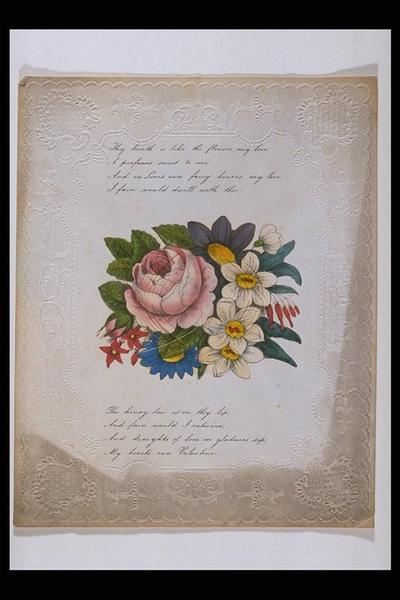 Thy breath is like the flowers, my love,
A perfume sweet to me,
And in Love's own fairy bowers, my love
I fain would dwell with thee.
The honey dew is on thy lip
And fain would I entwine,
And draughts of love in gladness sip,
My hearts own Valentine.